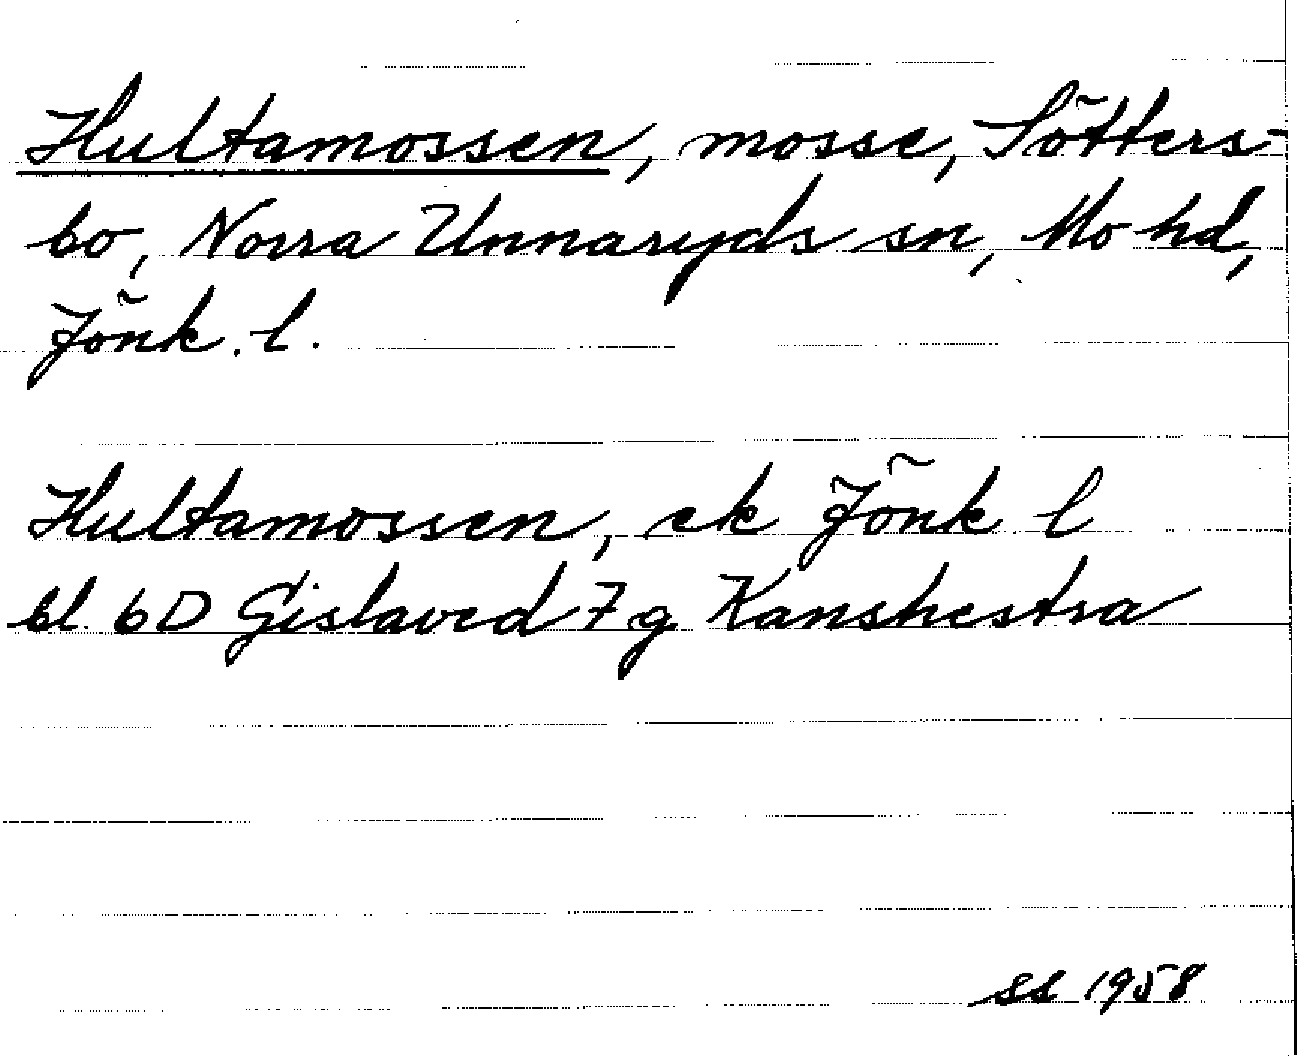 Hultamossen, mosse, Sötters-
bo, Norra Unnaryds sn, Mo hd,
Jönk. l.
Hultamossen, ek Jönk l
bl 6D Gislaved 7 g Kanshestra
SS 1958